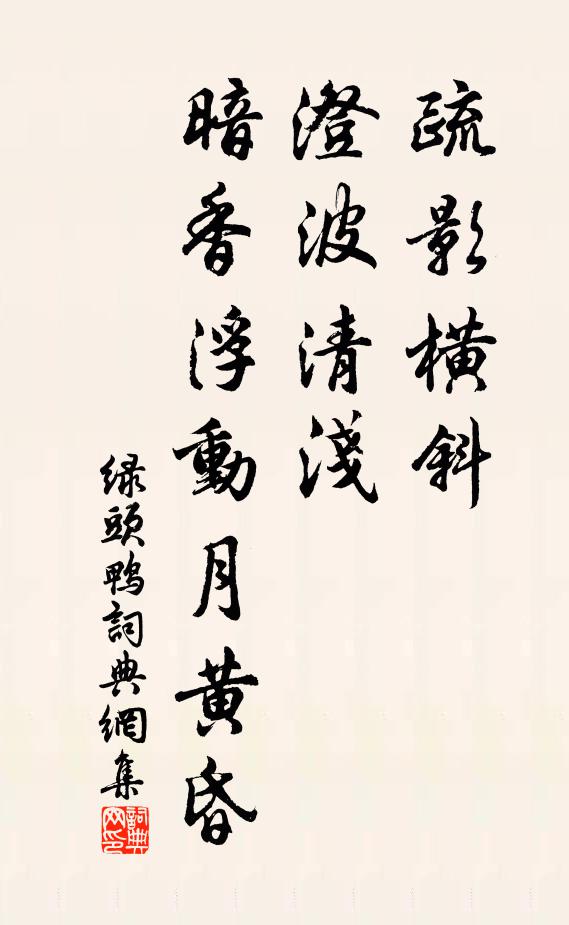 疏影橫斜
澄波清淺
暗香浮動月黃昏
緑頭鴨詞典網集
詞典
网印